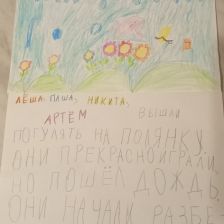 ЛЁША, ПАША, НИКИТА,
АРТЁМ ВЫШЛИ
ПОГУЛЯТЬ НА ПОЛЯНКУ.
ОНИ ПРЕКРАСНО ИГРАЛИ
НО ПОШЁЛ ДОЖДЬ
ОНИ НАЧАЛИ РАЗБЕ